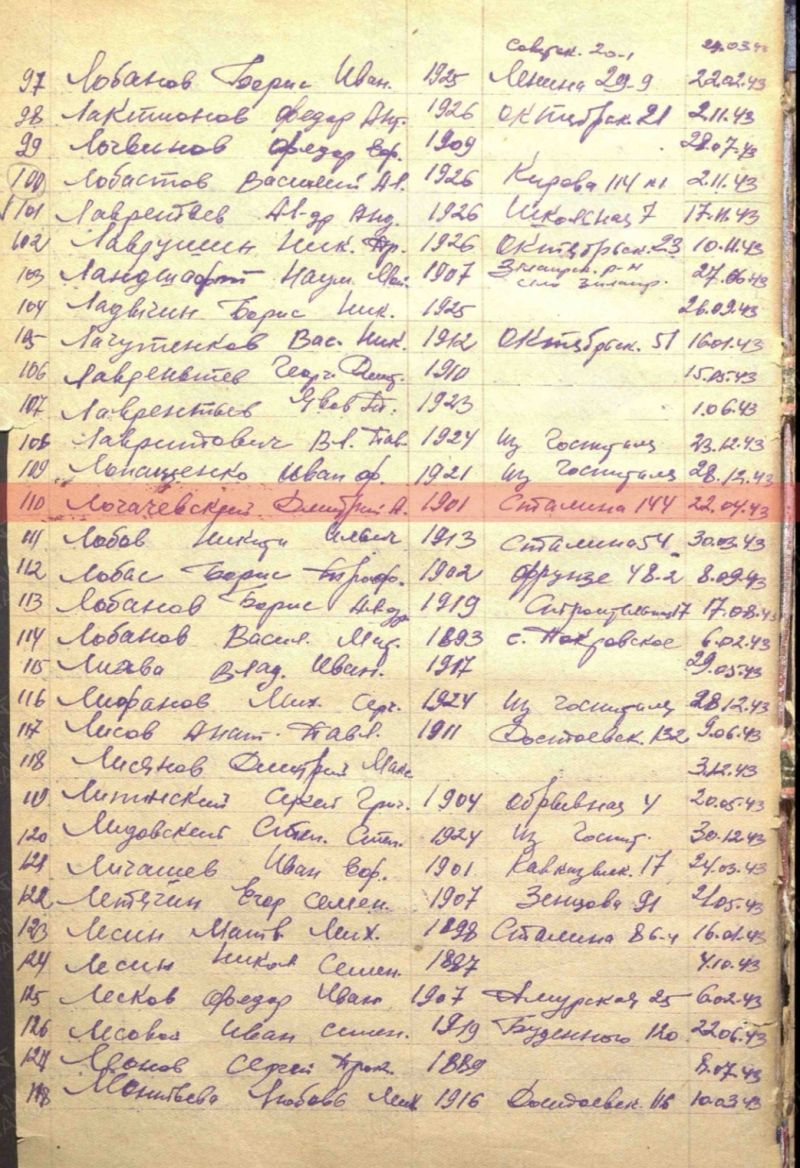 Советск. 20-1 24.03.43
97 Лобанов Борис Иван. 1925 Ленина 29-9 22.02.43
98 Лактионов Федор Анд. 1926 Октябрьск. 21 2.11.43
99 Логвинов Федор Еф. 1909 28.07.43
100 Лобастов Василий Ал. 1926 Кирова 114 2.11.43
101 Лаврентьев Ал-др Анд. 1926 Школьная 7 17.11.43
102 Лаврушин Ник. Гр. 1926 Октябрьск. 23 10.11.43
103 Ландшафт Наум 1907 Зилаирск. р-н 27.06.43
село Зилаир.
104 Ладыгин Борис Ник. 1925 26.09.43
105 Лачутенков Вас. Ник. 1912 Октябрьск. 51 16.01.43
106 Лаврентьев Георг. Дмит. 1910 15.05.43
107 Лаврентьев Яков 1923 1.06.43
108 Лавринович Вл. Пав. 1924 Из госпиталя 23.12.43
109 Лопащенко Иван Ф. 1921 Из госпиталя 28.12.43
110 Логачевский Дмитрий А. 1901 Сталина 144 22.04.43
111 Лобов Никита Ильич 1913 Сталина 54 30.03.43
112 Лобас Борис Троф. 1902 Фрунзе 48-2 8.09.43
113 Лобанов Борис 1919 Строительная 17 17.08.43
114 Лобанов Васил. Мат. 1893 с. Покровское 6.02.43
115 Влад. Иван. 1917 29.05.43
116 Лифанов Мих. Серг. 1924 Из госпиталя 28.12.43
117 Лисов Анат. Павл. 1911 Достоевск. 132 9.06.43
118 Лисянов Дмитрий Макс 3.12.43
119 Липинский Сергей Григ. 1904 Обрывная 4 20.05.43
120 Лидовский Степ. Степ. 1924 Из госпит. 30.12.43
121 Личашев Иван Еф. 1901 Кавказск. 17 24.03.43
122 Летягин Егор Семен. 1907 Зенцова 91 21.05.43
123 Лесин Матв. Мих. 1898 Сталина 86-4 16.01.43
124 Лесин Никол Семен. 1887 4.10.43
125 Лесков Федор Иван 1907 Амурская 25 6.02.43
126 Лесовой Иван Семен. 1919 Буденного 120 22.06.43
127 Леонов Сергей Прок. 1889 8.07.43
Любовь Мих 1916 Достоевск. 116 10.03.43